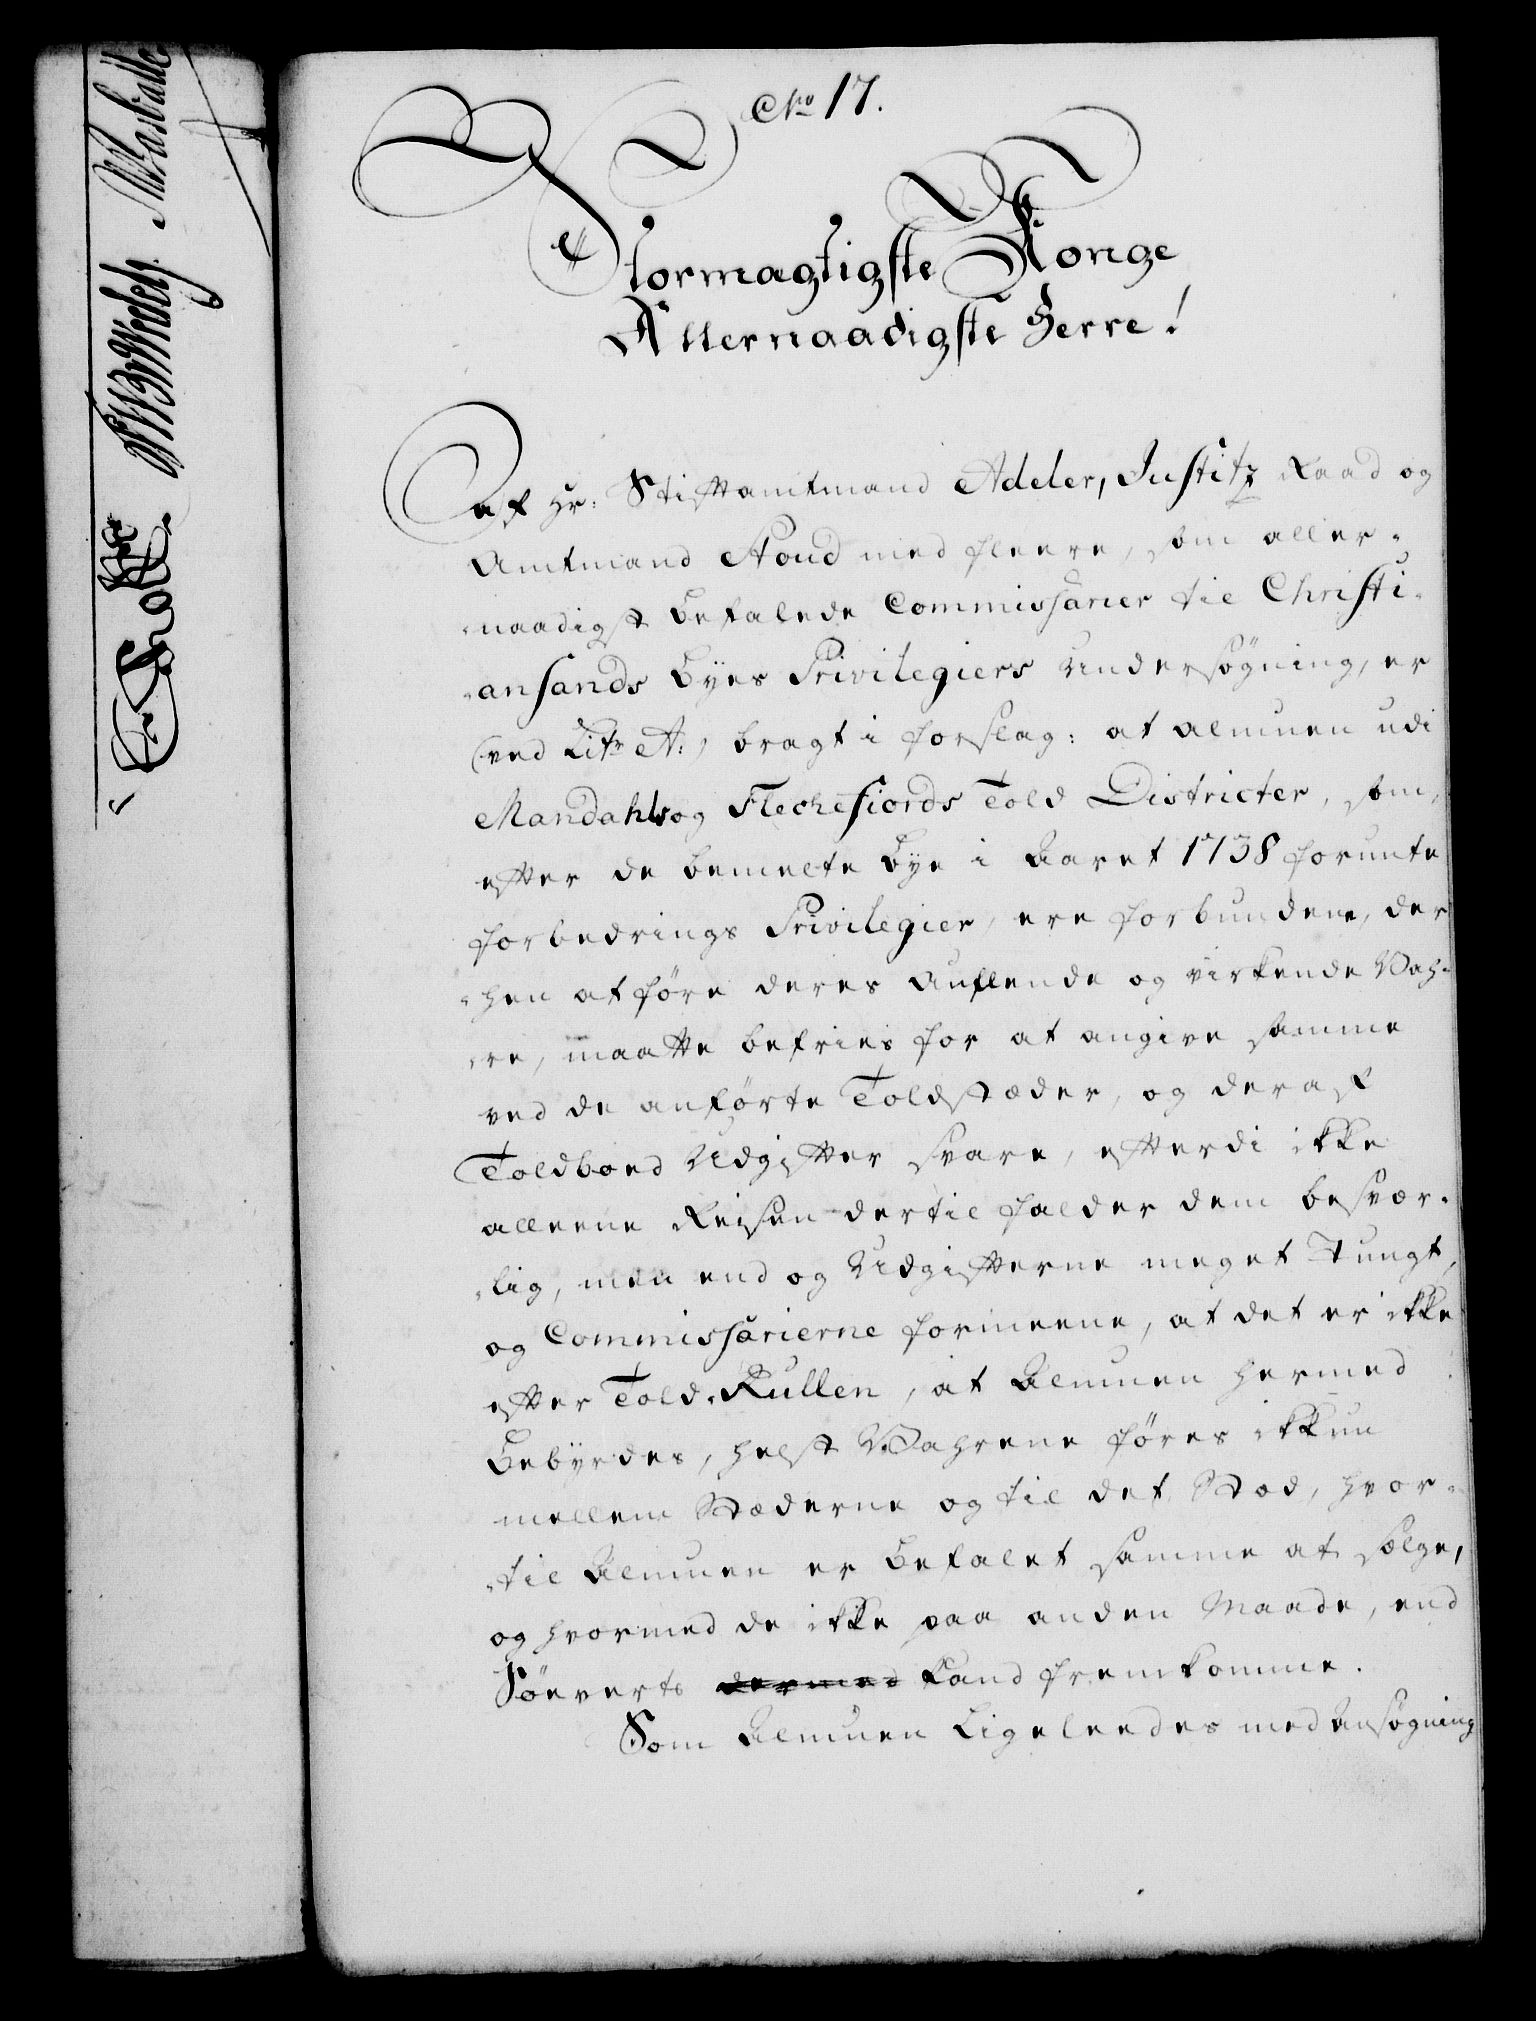 No 17.
Stormægtigste Konge
Allernaadigste Herre!
Af Hr: Stiftamtmand Adeler, Justitz Raad og
Amtmand Stoud med fleere, som aller-
-naadigst befalede Commissarier til Christi-
-ansands Byes Privilegiers Undersøgning, er
(ved Litr A:) bragt i forslag: at almuen udi
Mandahls og Flechefiords Told Districter, som,
efter de bemelte bye i Aaret 1738 forunte
forbedrings Privilegier, ere forbundene, der
-hen at føre deres Auflende og virkende Vah-
-re, maatte befries for at angive samme
ved de anførte Toldstæder, og deraf
Toldboed Udgifter svare, efterdi ikke
alleene Reisen dertil falder dem besvær-
-lig, men end og Udgifterne meget Tungt,
og Commissarierne formeene, at det er ikke
efter Told-Rullen, at Almuen hermed
Bebyrdes, helst Wahrene føres ikkun
mellem Stæderne og til det Stæd, hvor-
-til Almuen er befalet samme at sælge,
og hvormed de ikke paa anden Maade, end
Søeverts dermed kand fremkomme.
Som Almuen Ligeleedes med Ansøgning